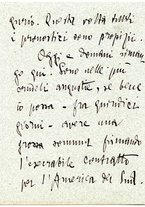 giorni. Questa volta tutti
i pronostici sono propizii.
Oggi e domani riman-
go qui. Sono nelle più
crudeli angustie, e se riesco
io possa - fra quindici
giorni - avere una
grossa somma firmando
l'execrabile contratto
per l'America del Sud.